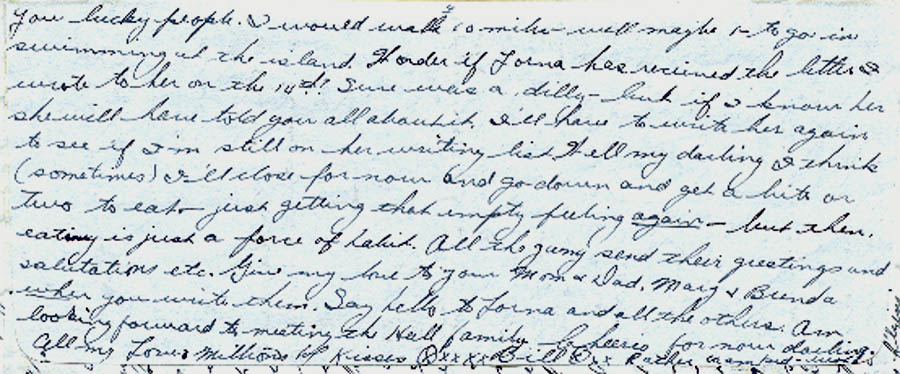 You lucky people. I would walk 10 miles - well maybe 1 - to go in
swimming at the island. Wonder if Lorna has received the letter I
wrote to her on the 14th! Sure was a dilly - but if I know her
she will have told you all about it. I'll have to write her again
to see if I'm still on her writing list. Well my darling I think
(sometimes) I'll close for now and go down and get a bite or
two to eat - just getting that empty feeling again - but then,
eating is just a force of habit. All the gang send their greetings and
salutations etc. Give my love to your Mom & Dad, Marg & Brenda
when you write them. Say hello to Lorna and all the others. Am
looking forward to meeting the Hall family - cheerio for now darling.
All my Love & Millions of Kisses xxxx Bill xx Rather cramped